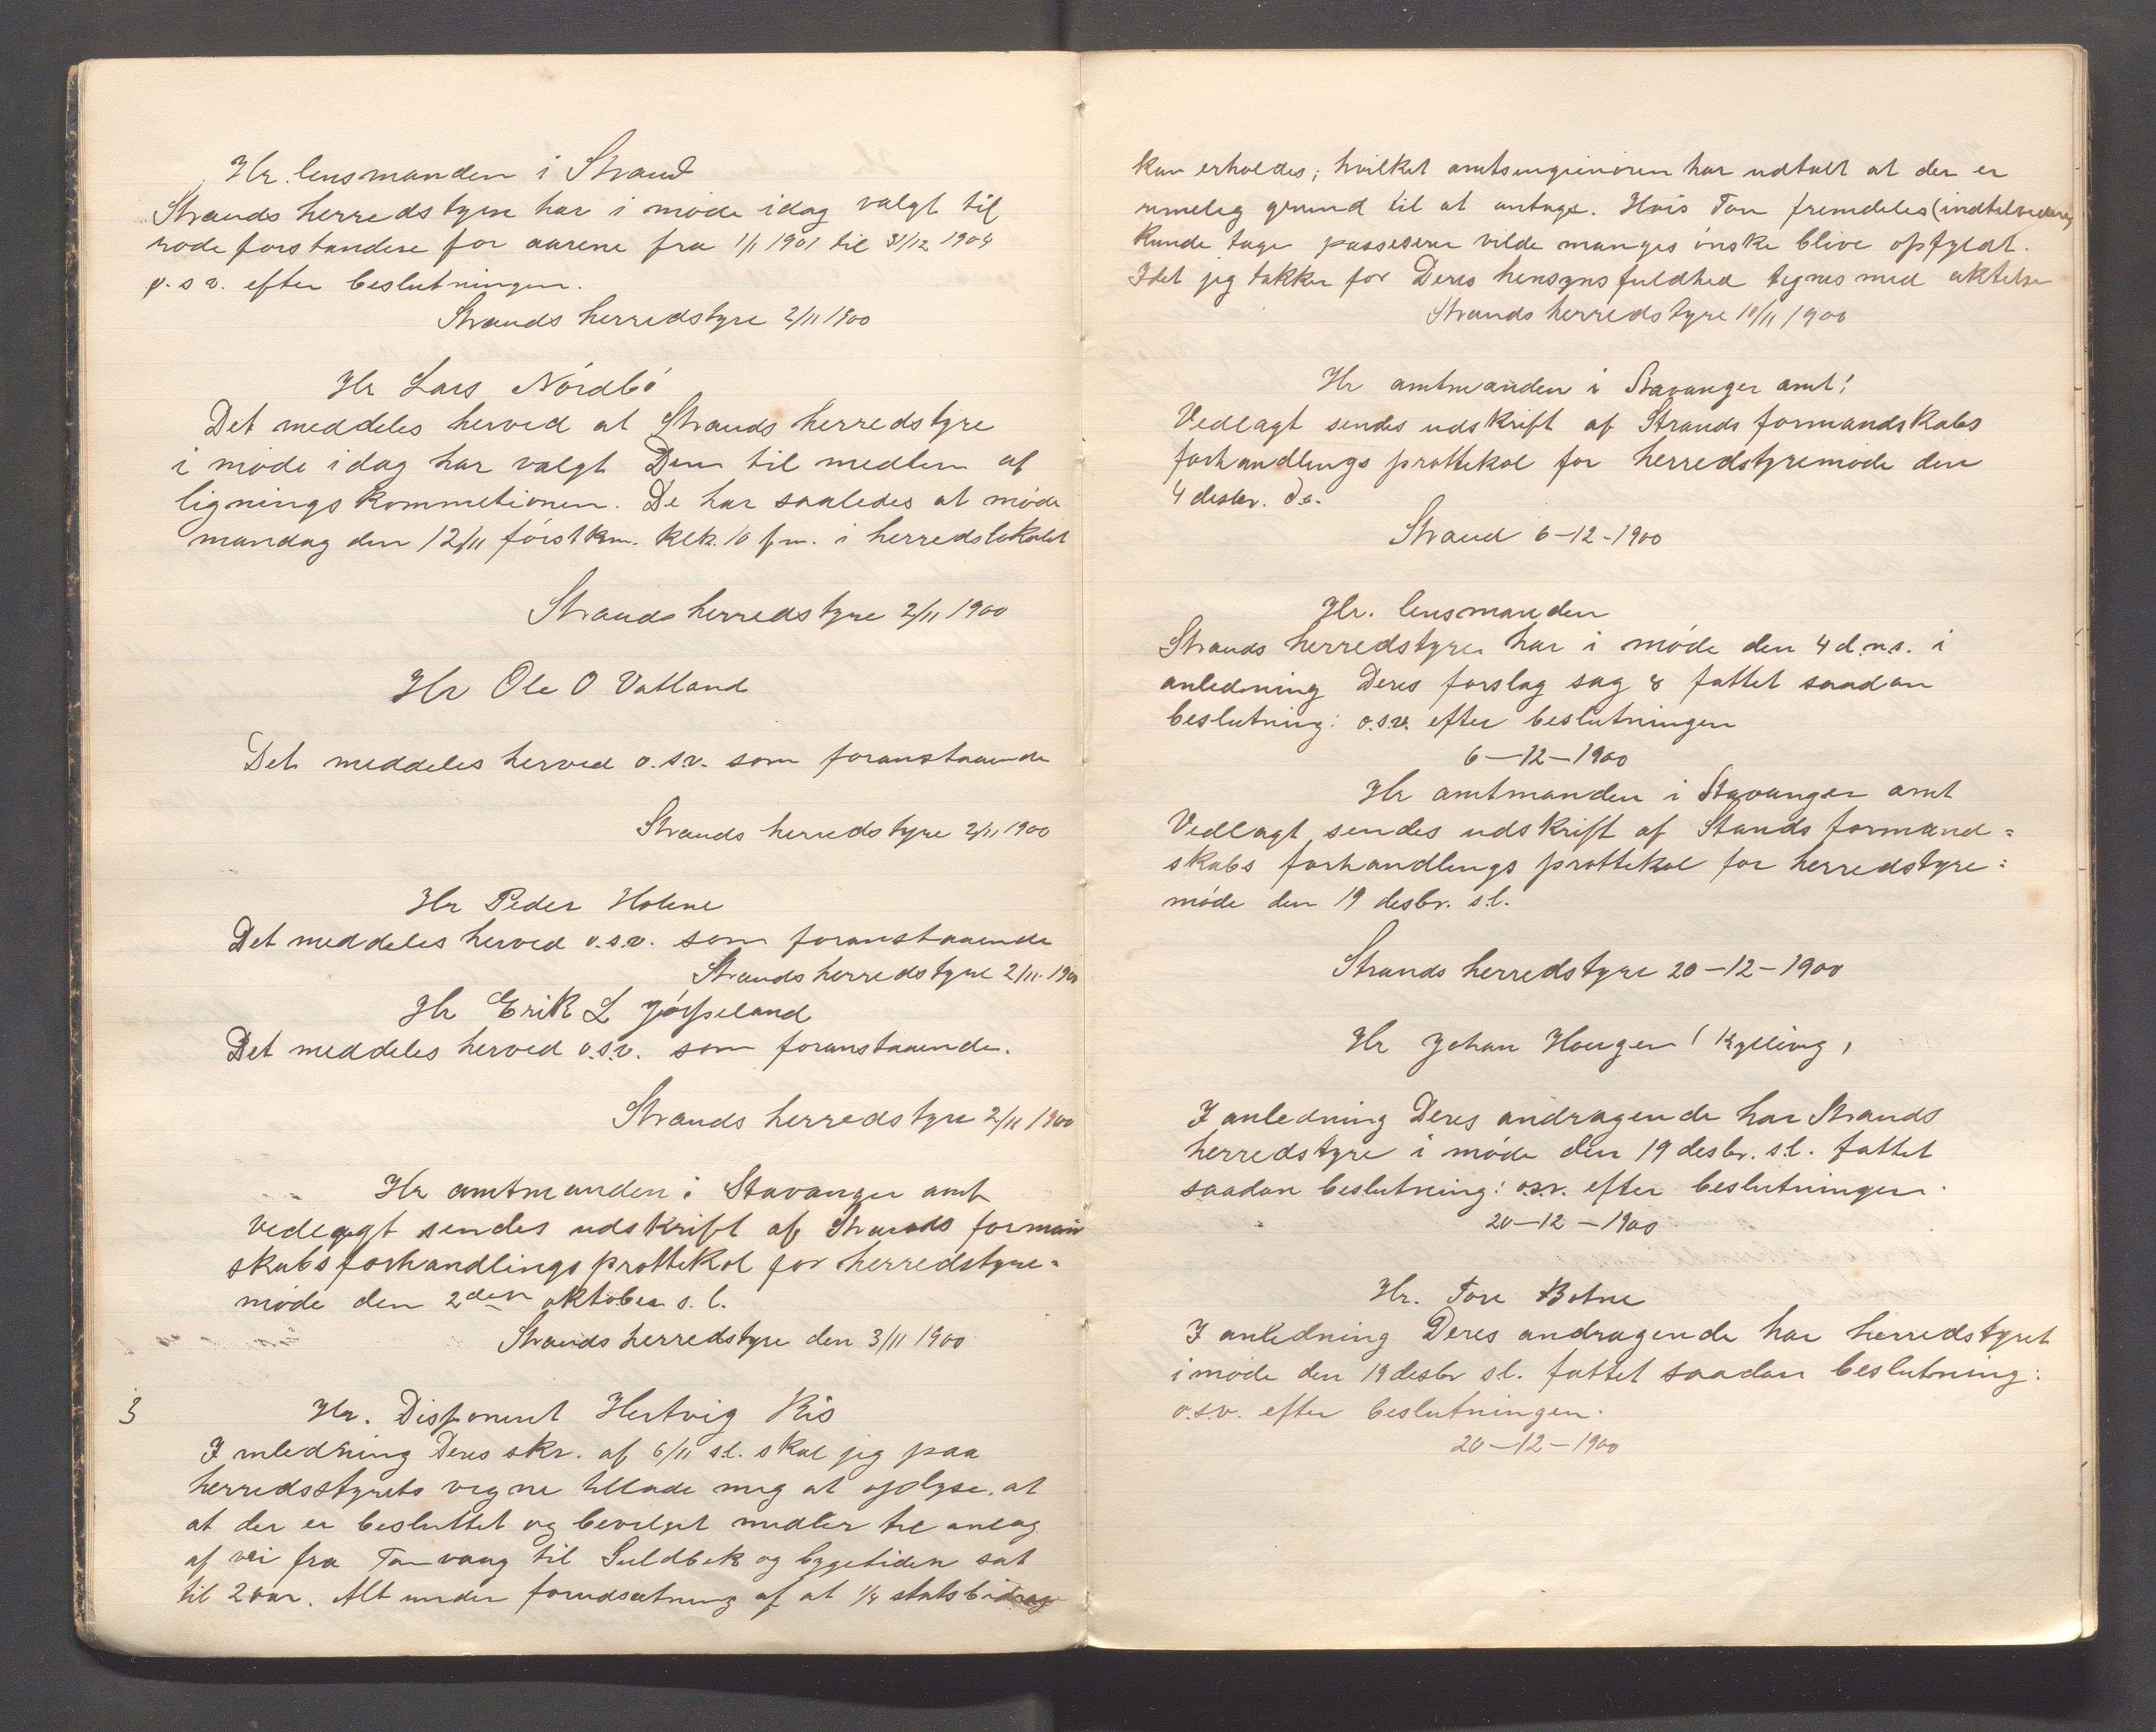 Hr. lensmanden i Strand
Strands herredstyre har i møde idag valgt til
rodeforstandere for aarene fra 1/1 1901 til 31/12 1904
o.s v. efter beslutningen.
Strands herredstyre 2/11 1900
Hr Lars Nórdbó
Det meddeles herved at Strands herredstyre
i møde idag har valgt Dem til medlem af
ligningskommetionen. De har saaledes at móde
mandag den 12/11 fórstkm. klk. 10 fm. i herredslokalet
Strands herredstyre 2/11 1900
Hr Ole O Vatland
Det meddeles herved o.s.v. som foranstaaende
Strands herredstyre 2/11 1900
Hr Peder Holene
Det meddeles herved o.s.v. som foranstaaende
Strands herredstyre 2/11. 1900
Hr Erik L
Det meddeles herved o.s.v. som foranstaaende.
Strands herredstyre 2/11 1900
Hr amtmanden i Stavanger amt
vedlagt sendes udskrift af Strands forman
skabsforhandlingsprottekol for herredstyre=
møde den 2den oktober s. l.
Strands herredstyre den 3/11 1900
3
Hr. Disponent Hertvig Ris
I anledning Deres skr. af 6/11 s.l. skal jeg paa
herredsstyrets vegne tillade mig at oplyse. at
at der er besluttet og bevilget midler til anlæg
af vei fra Tauvaag til Guldbek og bygetiden sat
til 2 aar. Alt under forudsætning af at 1/4 statsbidrag
kan erholdes; hvilket amtsingeniøren har udtalt at der er
rimelig grund til at antage. Hvis Tou fremdeles (indtilvidere)
kunde tage passeserer vilde manges ónske blive opfyldt.
Idet jeg takker for Deres hensynsfuldhed tegnes med aktelse
Strands herredstyre 10/11 1900
Hr amtmanden i Stavanger amt!
Vedlagt sendes udskrift af Strands formandskabs
forhandlings prottekol for herredstyremøde den
4 desbr. d.a.
Strand 6-12-1900
Hr. lensmanden
Strands herredstyre har i móde den 4 d.m.s. i
anledning Deres forslag sag 8 fattet saadan
beslutning: o.s.v. efter beslutningen
6-12-1900
Hr amtmanden i Stavanger amt
Vedlagt sendes udskrift af Stands formand=
skabs forhandlings prottekol for herredstyre=
móde den 19 desbr. s.l.
Strands herredstyre 20-12-1900
Hr Johan Hougen (Kylling)
I anledning Deres andragende har Strands
herredstyre i móde den 19 desbr. s.l. fattet
saadan beslutning: o.s.v. efter beslutningen.
20-12-1900
Hr. Tore Botne
I anledning Deres andragende har herredstyret
i møde den 19 desbr s.l. fattet saadan beslutning:
o.s.v. efter beslutningen.
20-12-1900